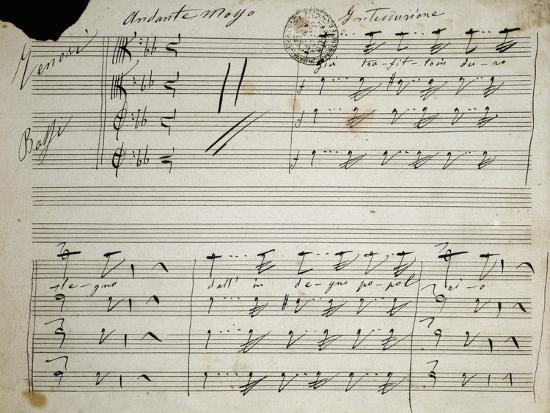 Andante Mosso Introduzione
Tenori
già tra-fit-to in du-ro
Bassi
le-gno
dall' in de-gno po-pol
ri-o